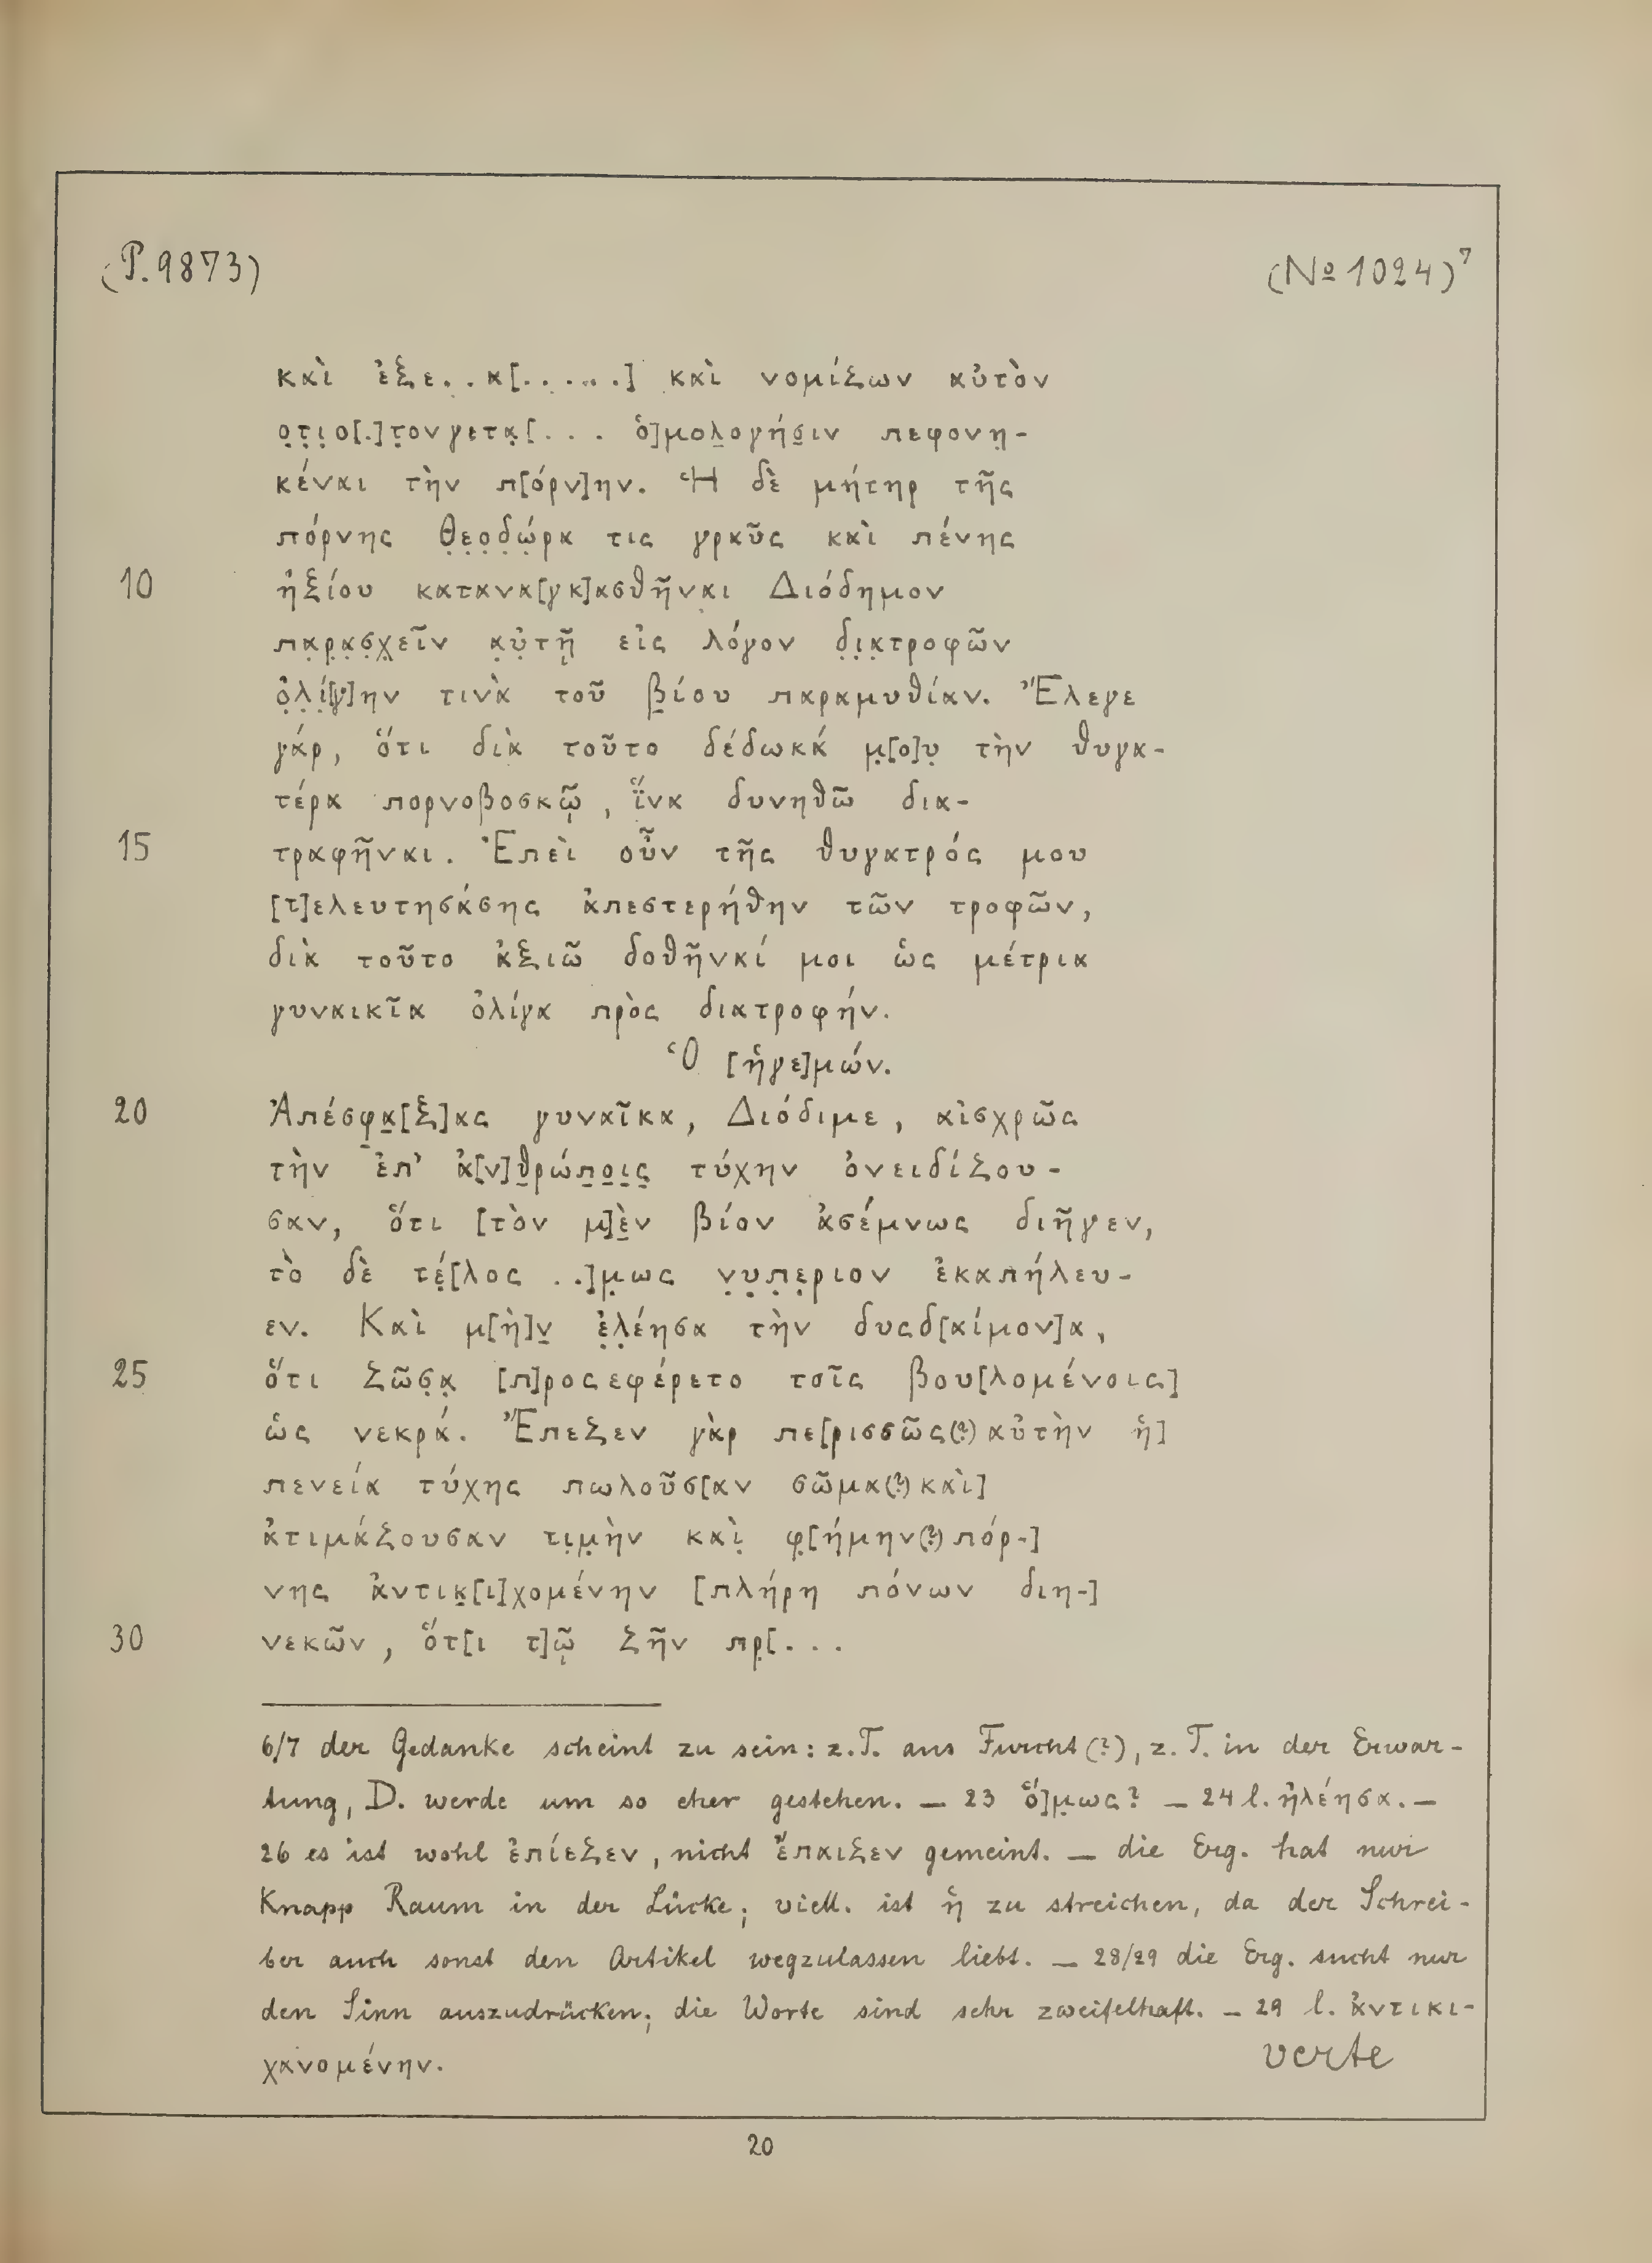 (P. 9873) (№ 1024)⁷
καὶ ἐξε..κ[......] καὶ νομίζων αὐτὸν
ο̣τ̣ι̣ο[.]τ̣ονγετα̣[... ὁ]μολ̣ογήσ̣ιν πεφονη̣-
κέναι τὴν π[όρν]ην. Ἡ δὲ μήτηρ τῆς
πόρνης Θ̣ε̣ο̣δ̣ώ̣ρα τις γραῦς καὶ πένης
10 ἠξίου κατανα[γκ]ασθῆναι Διόδημον
πα̣ρ̣α̣σ̣χ̣εῖν α̣ὐ̣τῇ̣ εἰς λόγον δ̣ι̣α̣τροφῶν
ὀ̣λ̣ί̣[γ]ην τινὰ τοῦ β̣ίου παραμυθίαν. Ἔλεγε
γάρ, ὅτι διὰ τοῦτο δέδωκά μ̣[ο]υ̣ τὴν θυγα-
τέρα πορνοβοσκῷ, ἵ̈να δυνηθῶ δια-
15 τραφῆναι. Ἐπεὶ οὖν τῆς θυγατρός μου
[τ]ελευτησάσης ἀπεστερήθην τῶν τροφῶν,
διὰ τοῦτο ἀξιῶ δοθῆναί μοι ὡς μέτρια
γυναικῖα ὀλίγα πρὸς διατροφήν.
Ὁ [ἡγε]μών.
20 Ἀπέσφ̣α̣[ξ]ας γυναῖκα, Διόδιμε, αἰσχρῶς
τὴν ἐπ' ἀ[ν]θ̣ρώπ̣ο̣ι̣ς̣ τύχην ὀνειδίζου-
σαν, ὅτι [τὸν μ]ὲ̣ν βίον ἀσέμνως διῆγεν,
τὸ δὲ τέ̣[λος ..]μ̣ως ν̣υ̣π̣ε̣ριον ἐκαπήλευ-
εν. Καὶ μ[ὴ]ν̣ ἐ̣λ̣έησα τὴν δυσδ[αίμον]α,
25 ὅτι ζῶσ̣α̣ [π]ροσεφέρετο τοῖς βου[λομένοις]
ὡς νεκρά. Ἔπεζεν γὰρ πε[ρισσῶς(?) αὐτὴν ἡ]
πενεία τύχης πωλοῦσ[αν σῶμα(?) καὶ]
ἀτιμάζουσαν τι̣μ̣ὴν καὶ̣ φ̣[ήμην(?) πόρ-]
νης ἀντικ̣[ι]χομένην [πλήρη πόνων διη-]
30 νεκῶν, ὅτ[ι τ]ῷ ζῆν πρ̣[...
6/7 der Gedanke scheint zu sein: z.T. aus Furcht(?), z.T. in der Erwar-
tung, D. werde um so eher gestehen. — 23 ὅ]μ̣ως? — 24 l. ἠλέησα. —
26 es ist wohl ἐπίεζεν, nicht ἔπαιζεν gemeint. — die Erg. hat nur
Knapp Raum in der Lücke; viell. ist ἡ zu streichen, da der Schrei-
ber auch sonst den Artikel wegzulassen liebt. — 28/29 die Erg. sucht nur
den Sinn auszudrücken; die Worte sind sehr zweifelhaft. — 29 l. ἀντικι-
χανομένην. verte
20